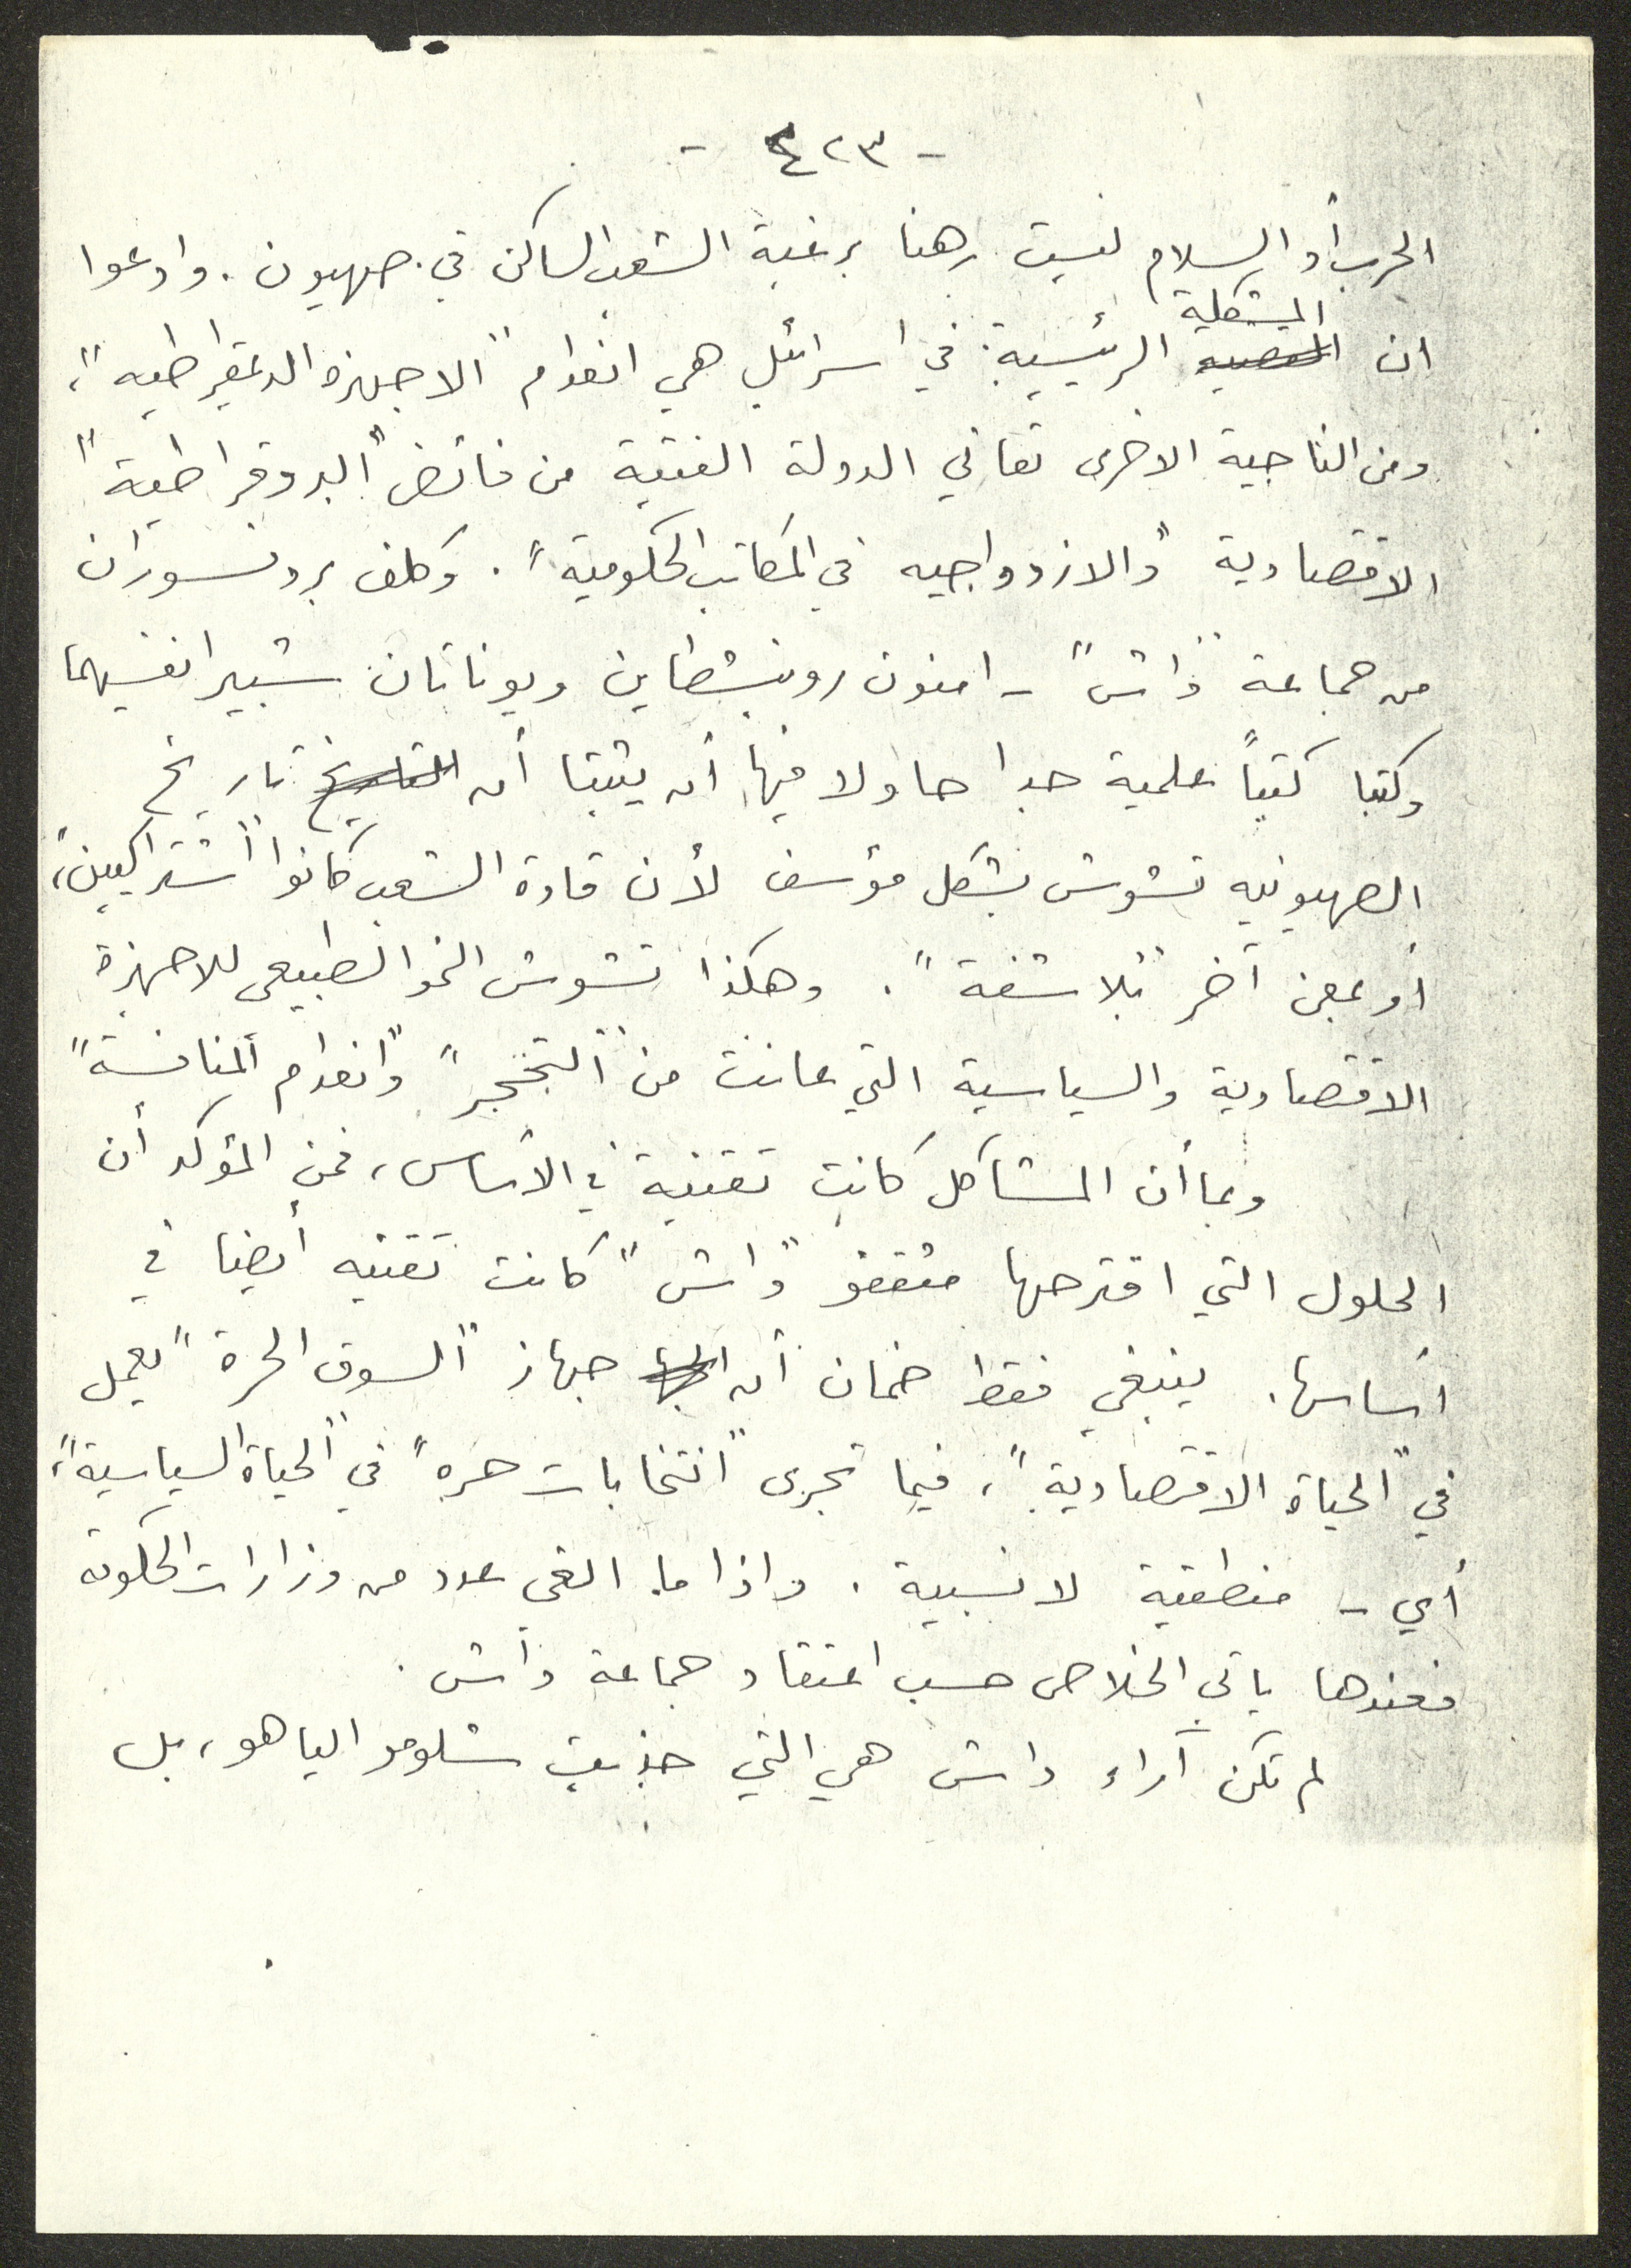 - ٤٢٣ -
الحرب أو السلام ليست رهنا برغبة الشعب الساكن في صهيون. وادعوا
المشكلة
ان القضية الرئيسية في اسرائيل هي انعدام "الاجهزة الديمقراطيه"،
ومن الناحية الاخرى تعاني الدولة الفتية من فائض "البروقراطية"
الاقتصادية "والازدواجيه في المكاتب الحكومية". وكلف بروفسوران
من جماعة "داش" - امنون روبنشطاين ويوناتان شبيرا نفسيهما
وكتبا كتباً علمية جدا حاولا فيها أن يثبتا أن التاريخ تاريخ
الصهيونيه تشوش بشكل مؤسف لأن قادة الشعب كانوا "اشتراكيين"،
أو بمعنى آخر "بلاشفة". وهكذا تشوش النمو الطبيعي للاجهزة
الاقتصادية والسياسية التي عانت من "التحجر" و"انعدام المنافسة"
وبما أن المشاكل كانت تقنية في الأساس، فمن المؤكد أن
الحلول التي اقترحها مثقفو "داش" كانت تقنيه أيضا في
أساسها. ينبغي فقط ضمان أن الجها جهاز "السوق الحرة" يعمل
في "الحياة الاقتصادية"، فيما تجرى "انتخابات حره" في "الحياة السياسية"،
أي - منطقية لا نسبية. واذا ما الغي عدد من وزارات الحكومة
فعندها يأتي الخلاص حسب اعتقاد جماعة داش.
لم تكن آراء داش هي التي جذبت شلومو الياهو، بل